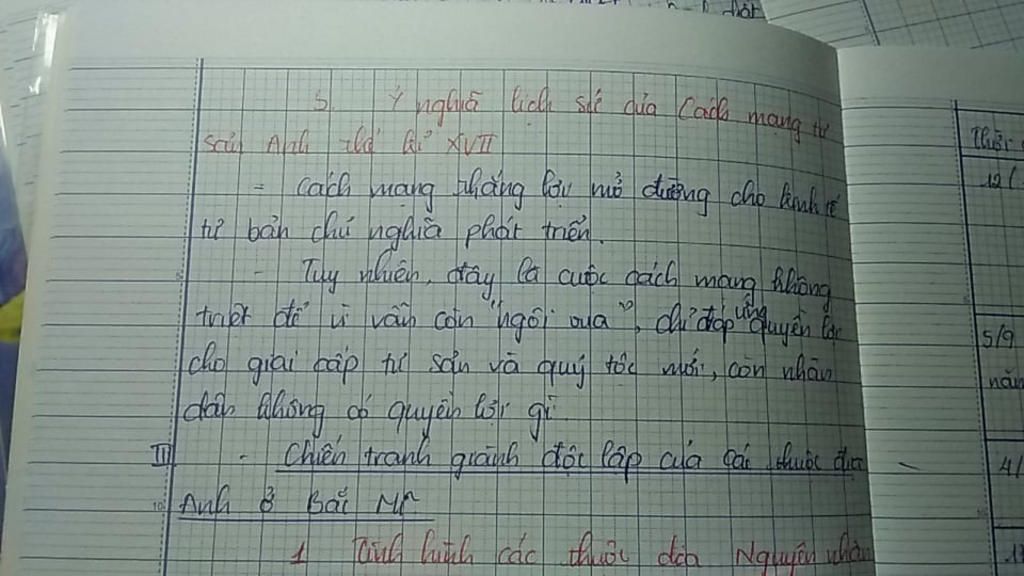 3. Ý nghĩa lịch sử của Cách mạng tư
sản Anh thế kỉ XVII
- Cách mạng thắng lợi mở đường cho kinh tế
tư bản chủ nghĩa phát triển.
- Tuy nhiên, đây là cuộc cách mạng không
triệt để vì vẫn còn "ngôi vua", chỉ đáp ứng quyền lợi
cho giai cấp tư sản và quý tộc mới, còn nhân
dân không có quyền lợi gì
II - Chiến tranh giành độc lập của các thuộc địa
Anh ở Bắc Mĩ
1 Tình hình các thuộc địa Nguyên nhân
12/
5/9
năm
4/